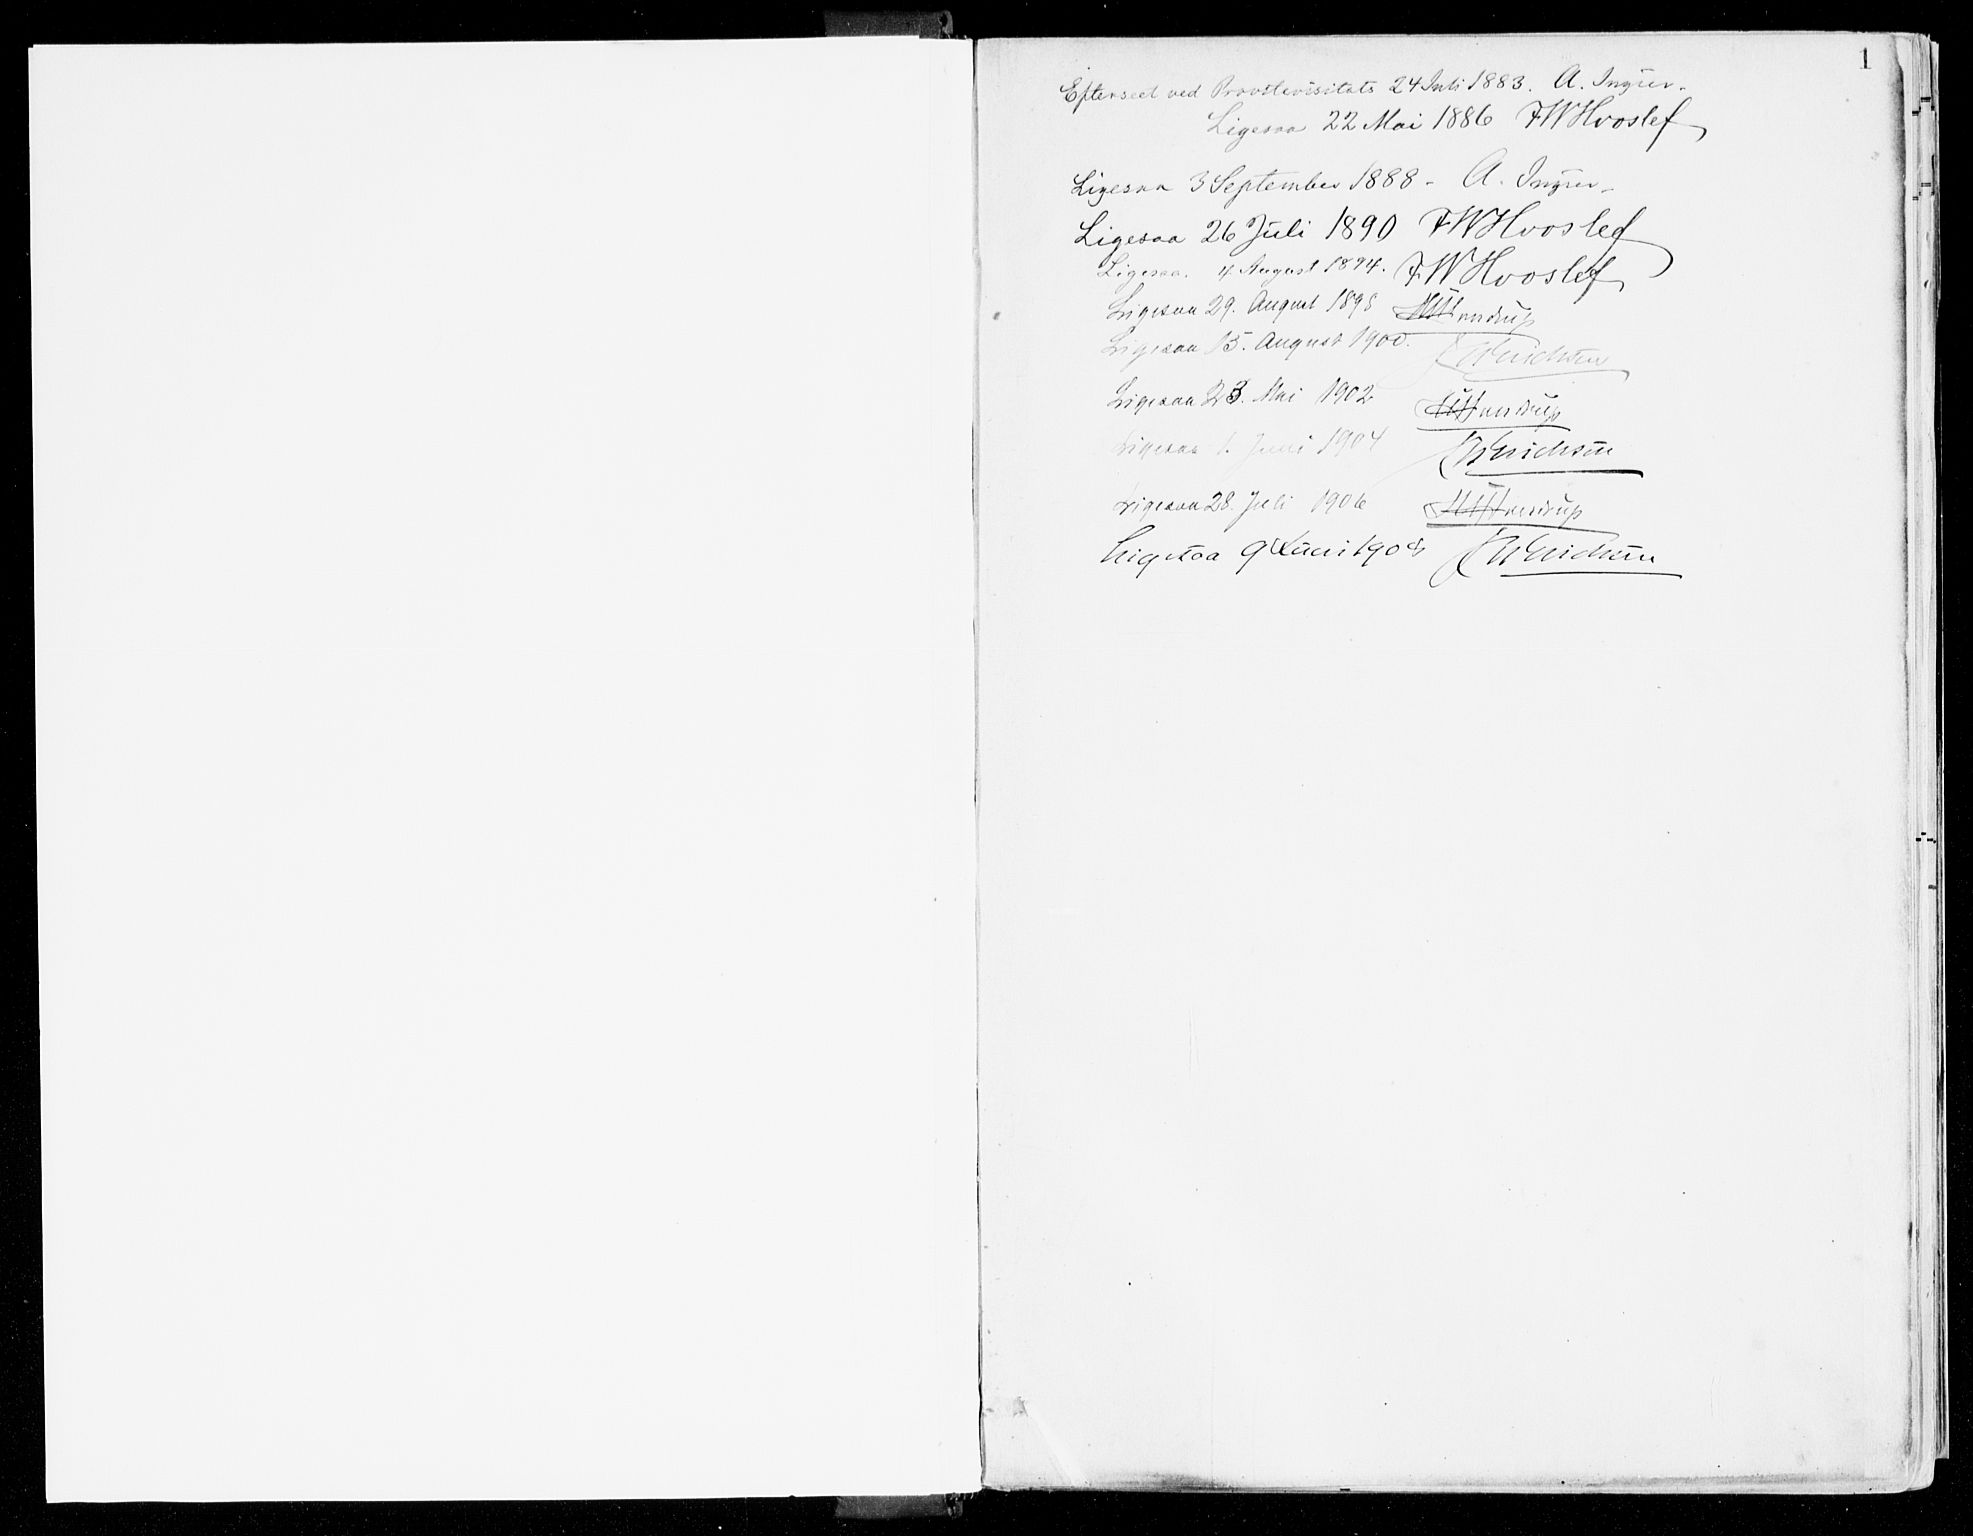 1
Efterseet ved Provstevisitats 24 Juli 1883. A.
Ligesaa 22 Mai 1886 FWHvoslef
Ligesaa 3 September 1888 - A.
Ligesaa 26 Juli 1890 FWHvoslef
Ligesaa. 4 August 1894. FWHvoslef
Ligesaa 29. August 1898
Ligesaa 15. August 1900.
Ligesaa 23. Mai 1902
Ligesaa 1. Juni 1904
Ligesaa 28. Juli 1906
Ligesaa 9 Juni 1908